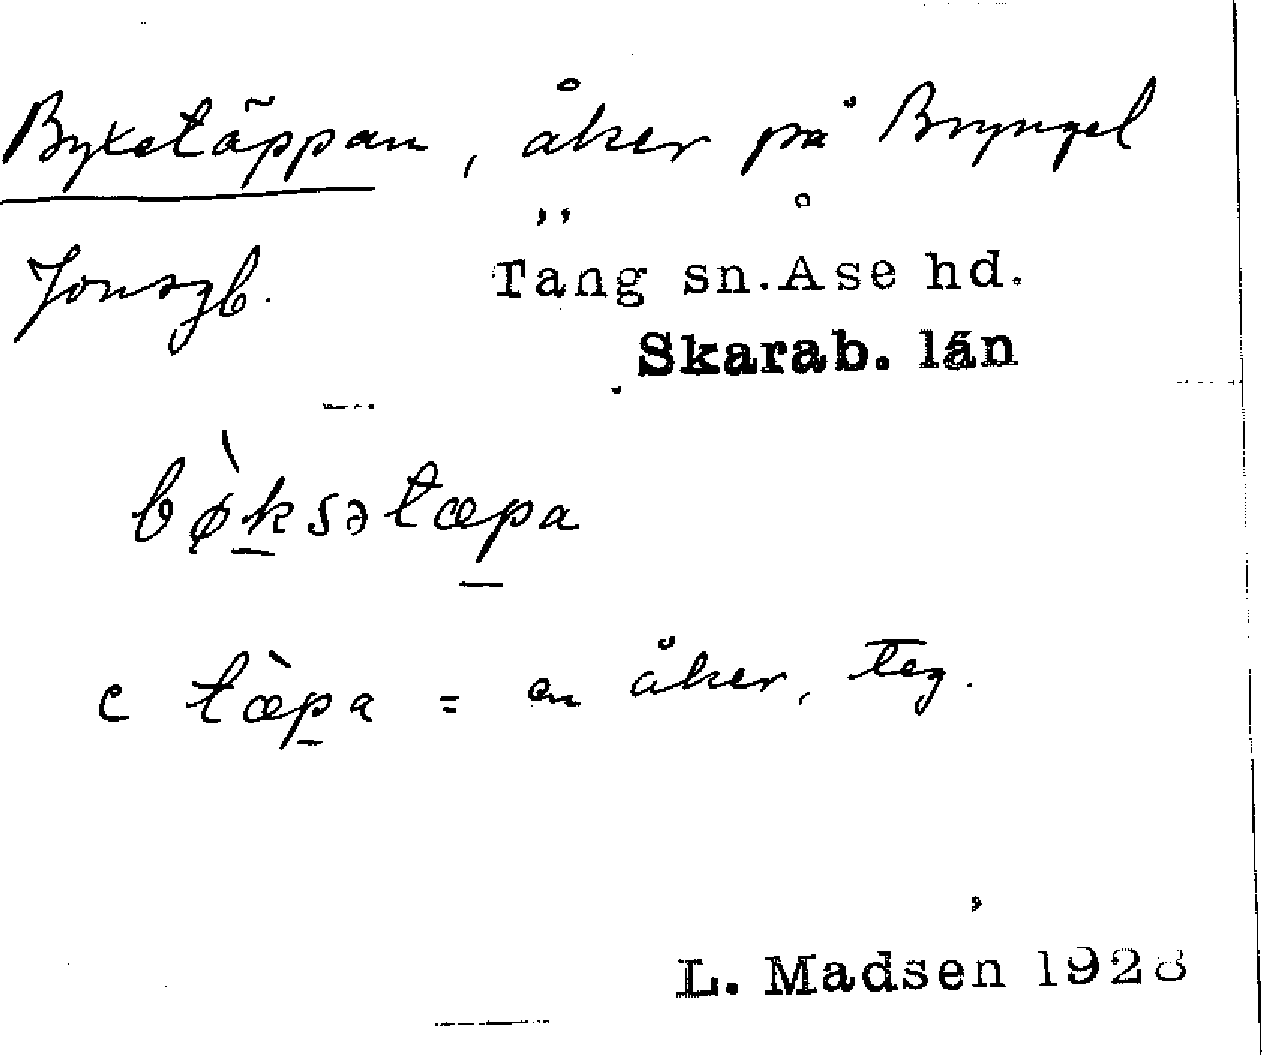 Byxetäppan, åker på Bryngel
Jonsgb. Täng sn. Åse hd.
Skarab. län
bø̀ksətæpa
e tæ̀pa = en åker, teg.
L. Madsen 1928